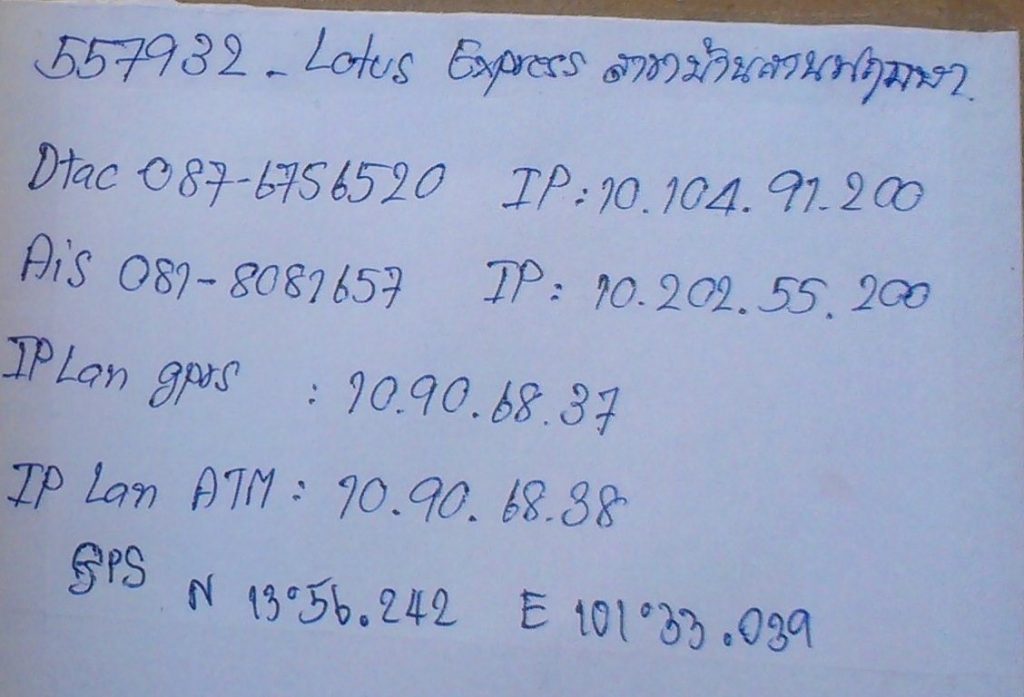 557932 - Lotus Express สาขาบ้านสวนพฤกษา
Dtac 087-6756520 IP : 10.104.91.200
Ais 081-8081657 IP : 10.202.55.200
IP Lan gprs : 10.90.68.37
IP Lan ATM : 10.90.68.38
GPS N 13°56.242 E 101°33.039